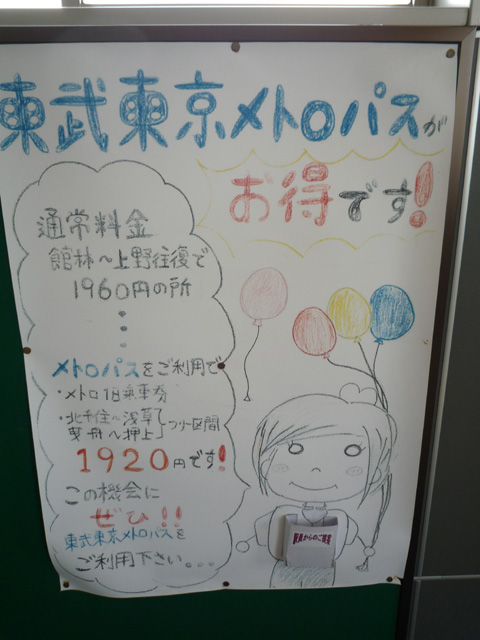 東武東京メトロパスが
お得です!
通常料金
館林〜上野往復で
1960円の所
メトロパスをご利用で
・メトロ1日乗車券
・北千住〜浅草
曳舟〜押上
フリー区間
1920円です!
この機会に
ぜひ!!
東武東京メトロパスを
ご利用下さい。。。
駅員からのご提案